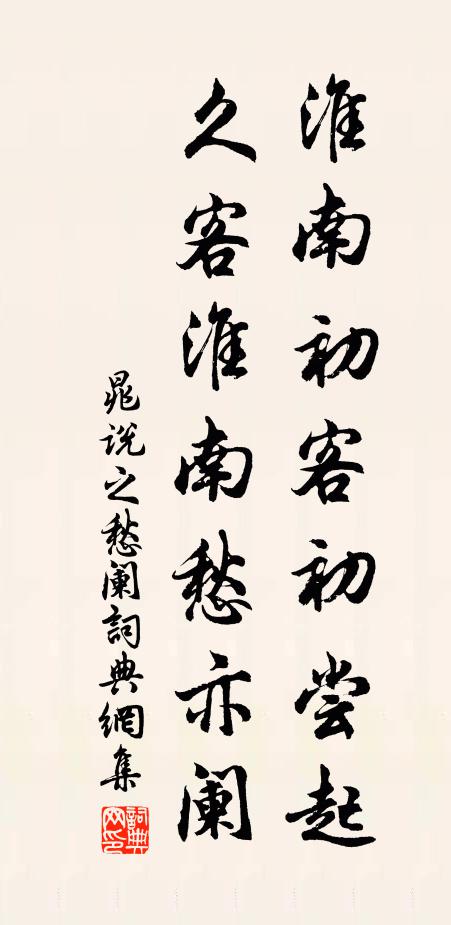 淮南初客初尝起
久客淮南愁亦阑
晁说之愁阑詞典網集
詞典网印